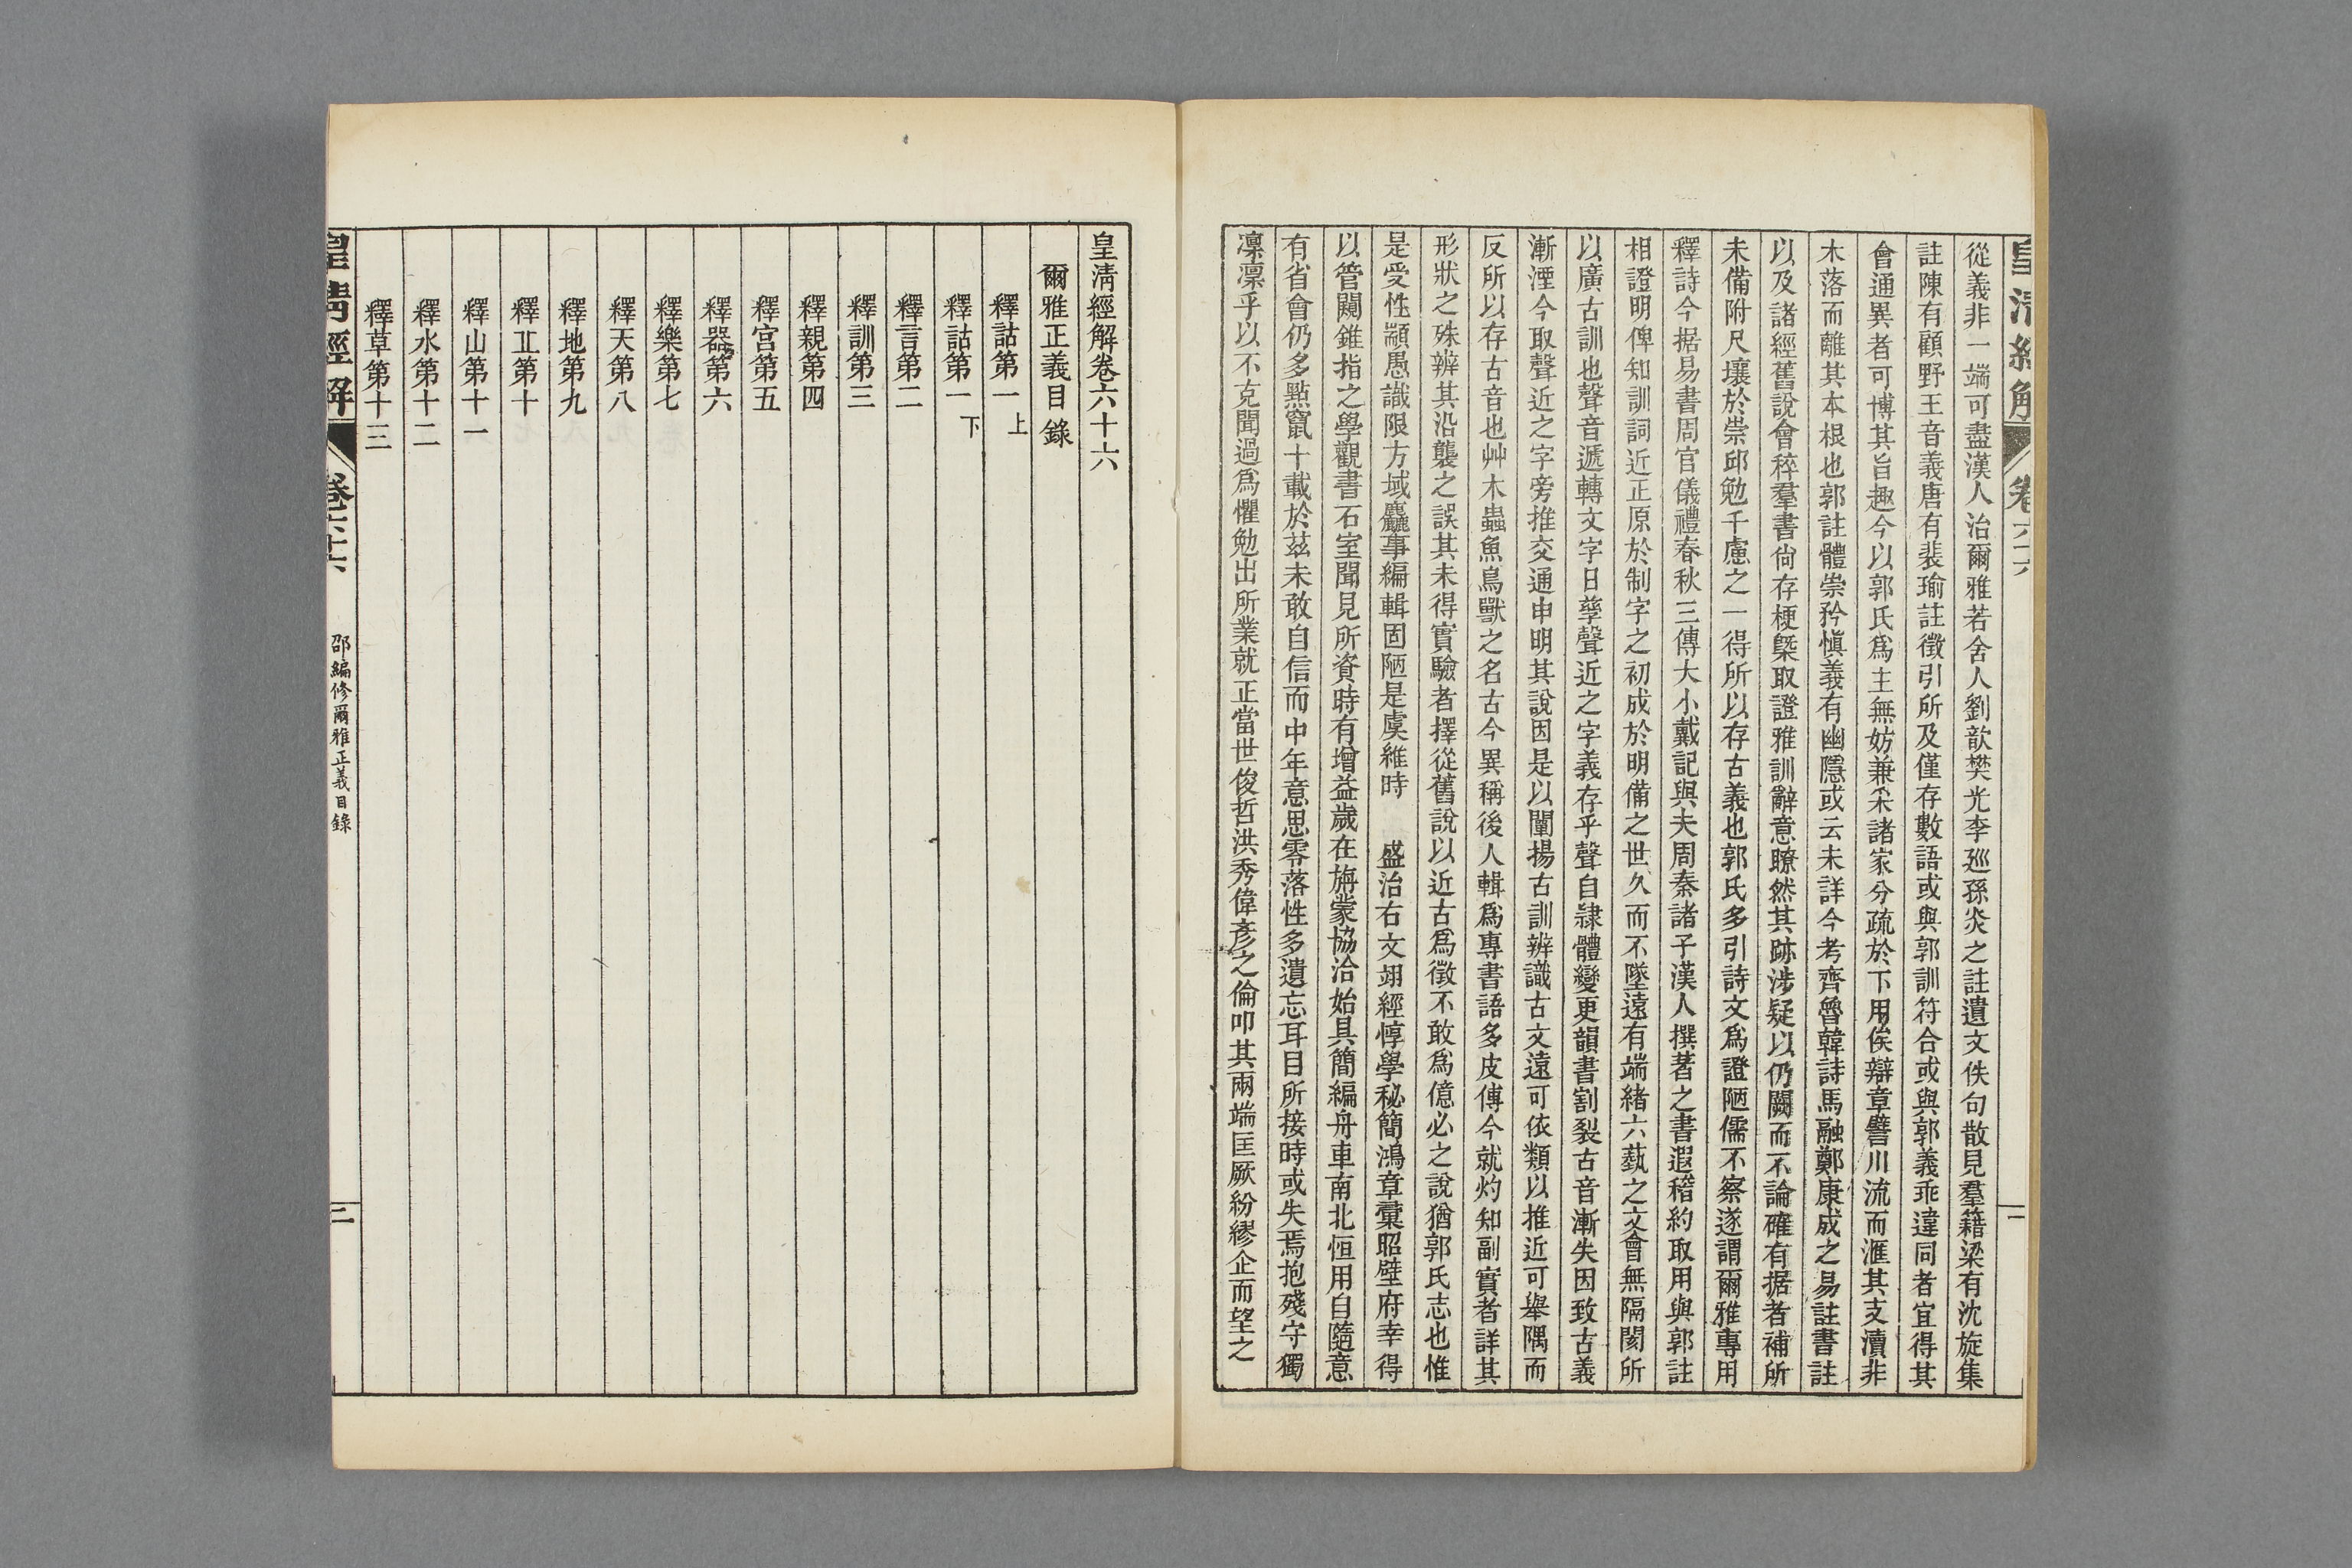 皇清經解
卷六十六
一
從義非一端可盡漢人治爾雅若舍人劉歆樊光李巡孫炎之註遺文佚句散見羣籍梁有沈旋集
註陳有顧野王音義唐有裴瑜註徵引所及僅存數語或與郭訓符合或與郭義乖違同者宜得其
會通異者可博其旨趣今以郭氏爲主無妨兼采諸家分疏於下用俟辯章譬川流而滙其支瀆非
木落而離其本根也郭註體崇矜愼義有幽隱或云未詳今考齊魯韓詩馬融鄭康成之易註書註
以及諸經舊說會稡羣書尙存梗槩取證雅訓辭意瞭然其跡涉疑似仍闕而不論確有据者補所
未備附尺壤於崇邱勉千慮之一得所以存古義也郭氏多引詩文爲證陋儒不察遂謂爾雅專用
釋詩今据易書周官儀禮春秋三傳大小戴記與夫周秦諸子漢人撰著之書遐稽約取用與郭註
相證明俾知訓詞近正原於制字之初成於明備之世久而不墜遠有端緒六蓺之文會無隔閡所
以廣古訓也聲音遞轉文字日孳聲近之字義存乎聲自隷體變更韻書割裂古音漸失因致古義
漸湮今取聲近之字旁推交通申明其說因是以闡揚古訓辨識古文遠可依類以推近可舉隅而
反所以存古音也艸木蟲魚鳥獸之名古今異稱後人輯爲專書語多皮傅今就灼知副實者詳其
形狀之殊辨其沿襲之誤其未得實驗者擇從舊說以近古爲徵不敢爲億必之說猶郭氏志也惟
是受性顓愚識限方域麤事編輯固陋是虞維時　盛治右文翊經惇學秘簡鴻章彙昭壁府幸得
以管闚錐指之學觀書石室聞見所資時有增益歲在旃蒙協洽始具簡編舟車南北恒用自隨意
有省會仍多點竄十載於茲未敢自信而中年意思零落性多遺忘耳目所接時或失焉抱殘守獨
凛凛乎以不克聞過爲懼勉出所業就正當世俊哲洪秀偉彥之倫叩其兩端匡厥紛繆企而望之
皇清經解卷六十六
爾雅正義目錄
釋詁第一上
釋詁第一下
釋言第二
釋訓第三
釋親第四
釋宮第五
釋器第六
釋樂第七
釋天第八
釋地第九
釋丠第十
釋山第十一
釋水第十二
釋草第十三
皇清經解
卷六十六
邵編修爾雅正義目錄
二